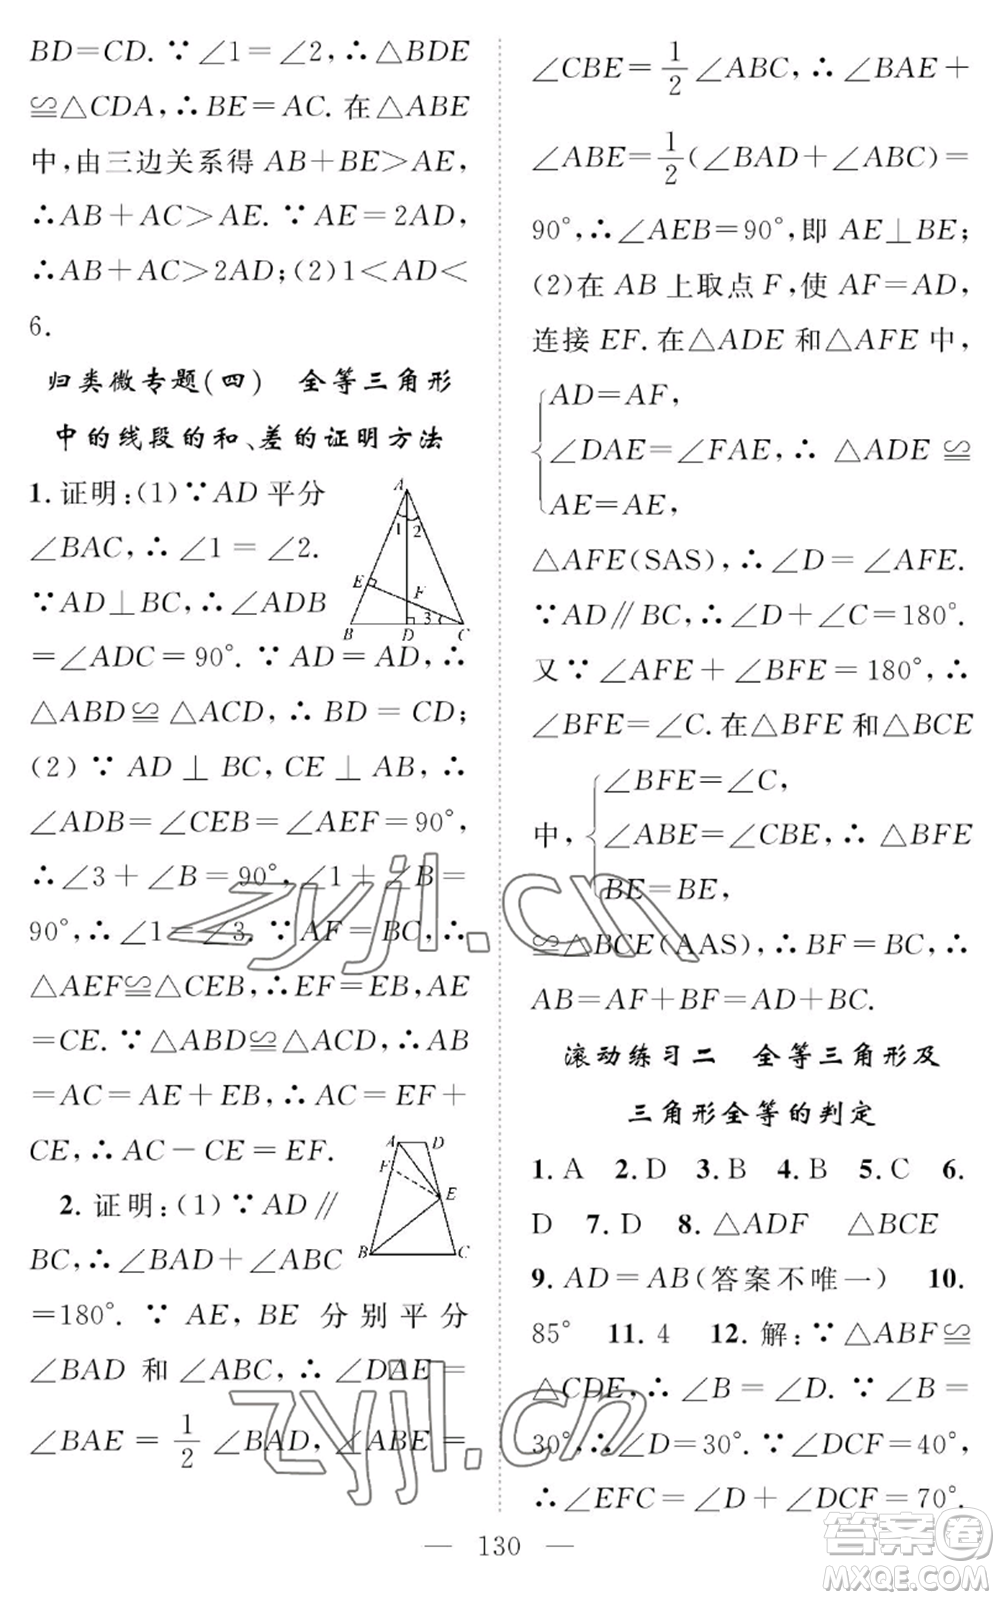 BD=CD. ∵∠1=∠2,∴△BDE
≌△CDA,∴BE=AC. 在△ABE
中,由三边关系得 AB+BE>AE,
∴AB+AC>AE. ∵AE=2AD,
∴AB+AC>2AD;(2)1<AD<
6.
归类微专题(四) 全等三角形
中的线段的和、差的证明方法
1. 证明:(1)∵AD 平分
∠BAC,∴∠1=∠2.
∵AD⊥BC,∴∠ADB
=∠ADC=90°. ∵AD=AD,∴
△ABD≌△ACD,∴BD=CD;
(2)∵AD⊥BC,CE⊥AB,∴
∠ADB=∠CEB=∠AEF=90°,
∴∠3+∠B=90°,∠1+∠B=
90°,∴∠1=∠3. ∵AF=BC,∴
△AEF≌△CEB,∴EF=EB,AE
=CE. ∵△ABD≌△ACD,∴AB
=AC=AE+EB,∴AC=EF+
CE,∴AC-CE=EF.
2. 证明:(1)∵AD∥
BC,∴∠BAD+∠ABC
=180°. ∵AE,BE 分别平分
∠BAD 和∠ABC,∴∠DAE=
∠BAE=1/2∠BAD,∠ABE=
A
1 2
E
F
3
B D C
A D
F
E
B C
∠CBE=1/2∠ABC,∴∠BAE+
∠ABE=1/2(∠BAD+∠ABC)=
90°,∴∠AEB=90°,即 AE⊥BE;
(2)在 AB 上取点 F,使 AF=AD,
连接 EF. 在△ADE 和△AFE 中,
AD=AF,
∠DAE=∠FAE,∴△ADE≌
AE=AE,
△AFE(SAS),∴∠D=∠AFE.
∵AD∥BC,∴∠D+∠C=180°.
又∵∠AFE+∠BFE=180°,∴
∠BFE=∠C. 在△BFE 和△BCE
∠BFE=∠C,
中,∠ABE=∠CBE,∴△BFE
BE=BE,
≌△BCE(AAS),∴BF=BC,∴
AB=AF+BF=AD+BC.
滚动练习二 全等三角形及
三角形全等的判定
1. A 2. D 3. B 4. B 5. C 6.
D 7. D 8. △ADF △BCE
9. AD=AB(答案不唯一) 10.
85° 11. 4 12. 解:∵△ABF≌
△CDE,∴∠B=∠D. ∵∠B=
30°,∴∠D=30°. ∵∠DCF=40°,
∴∠EFC=∠D+∠DCF=70°.
— 130 —
zyjl.cn
zyjl.cn
答案圈
MXQE.COM